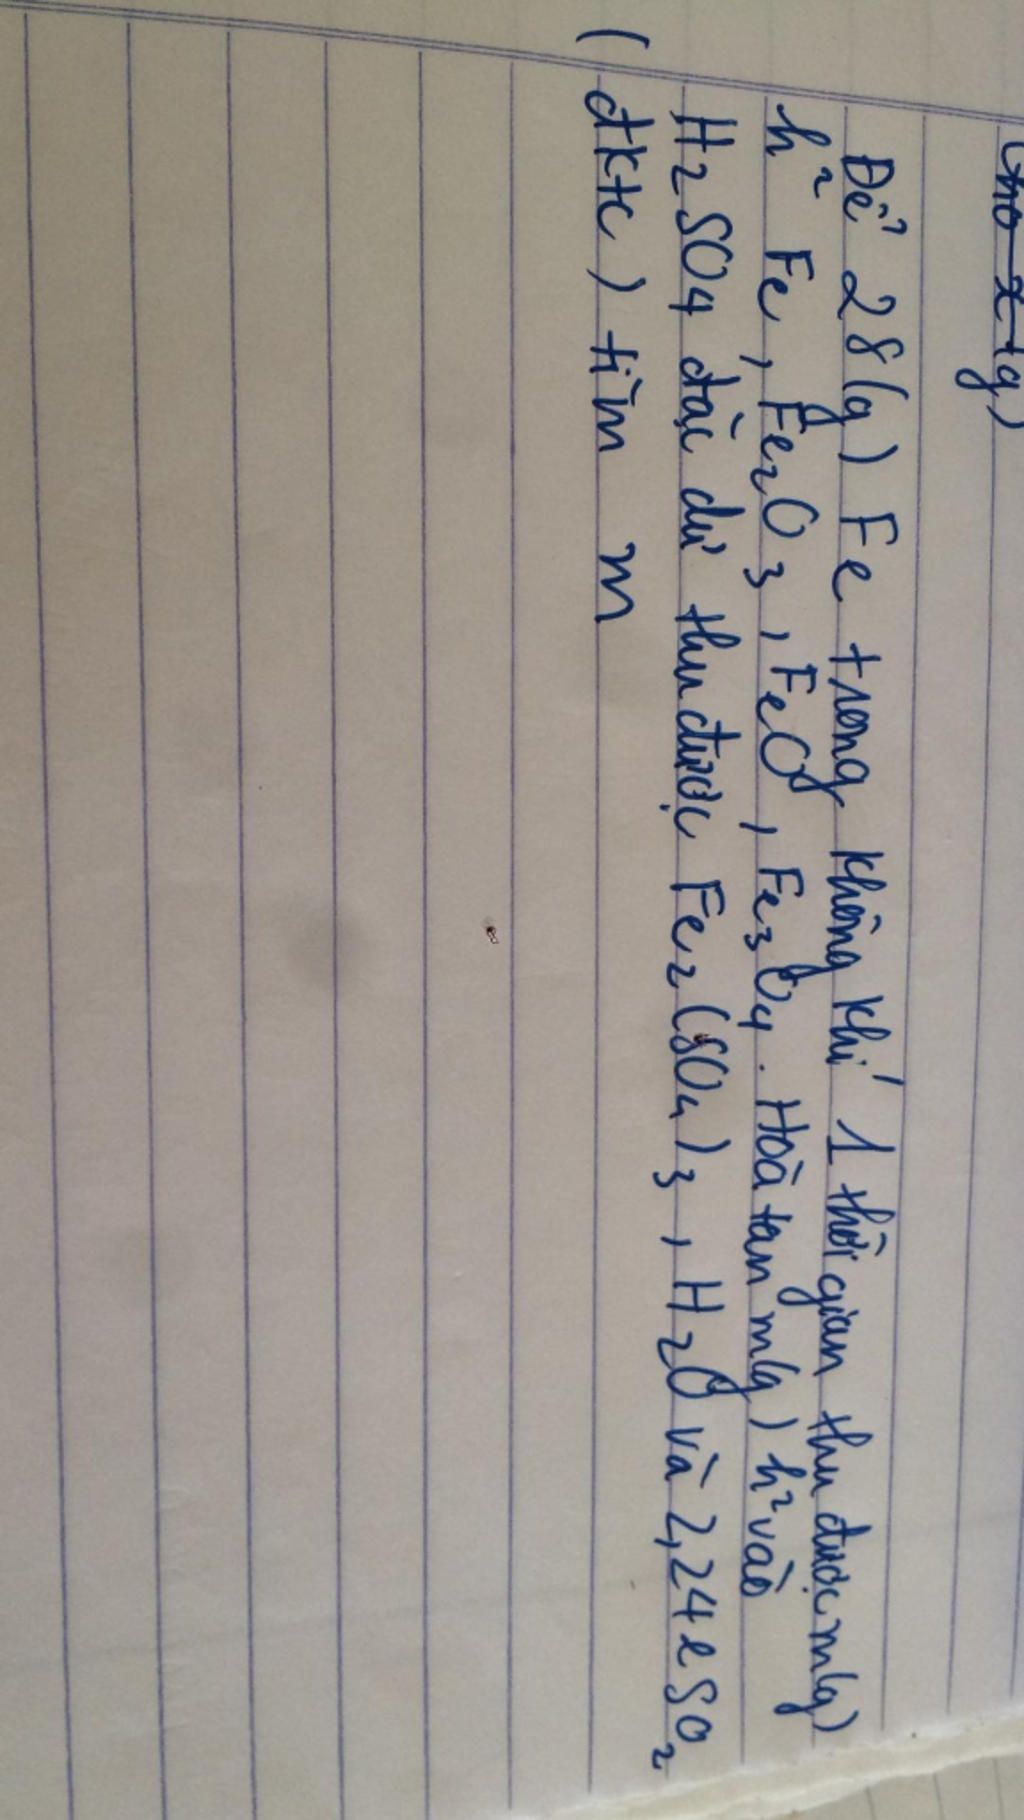 Để 28(g) Fe trong không khí 1 thời gian thu được m(g)
h² Fe, Fe₂O₃, FeO, Fe₃O₄. Hoà tan m(g) h² vào
H₂SO₄ đặc dư thu được Fe₂(SO₄)₃, H₂O và 2,24 l SO₂
(đktc) tìm m